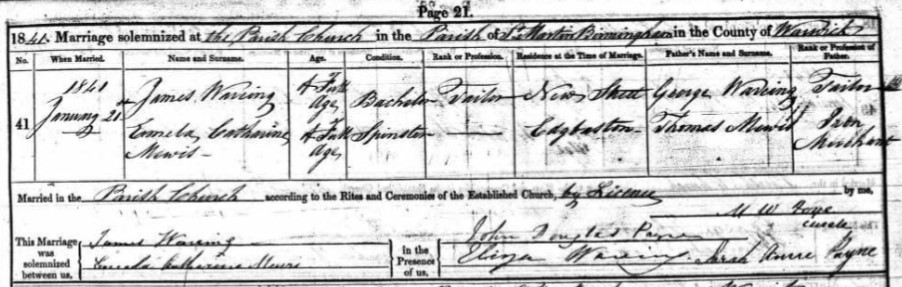 Page 21.
1841. Marriage solemnized at the Parish Church in the Parish of St Martin Birmingham in the County of Warwick
No. When Married. Name and Surname. Age. Condition. Rank or Profession. Residence at the Time of Marriage. Father's Name and Surname. Rank or Profession of Father.
41 1841 January 21st James Wareing of Full Age Bachelor Tailor New Street George Wareing Tailor
Emmela Catharine Mewis of Full Age Spinster Edgbaston Thomas Mewis Iron Merchant
Married in the Parish Church according to the Rites and Ceremonies of the Established Church, by Licence by me,
M W Foye
Curate
This Marriage was solemnized between us, James Wareing in the Presence of us, John Douglas Payne
Emmela Catharine Mewis Eliza Wareing Sarah Payne